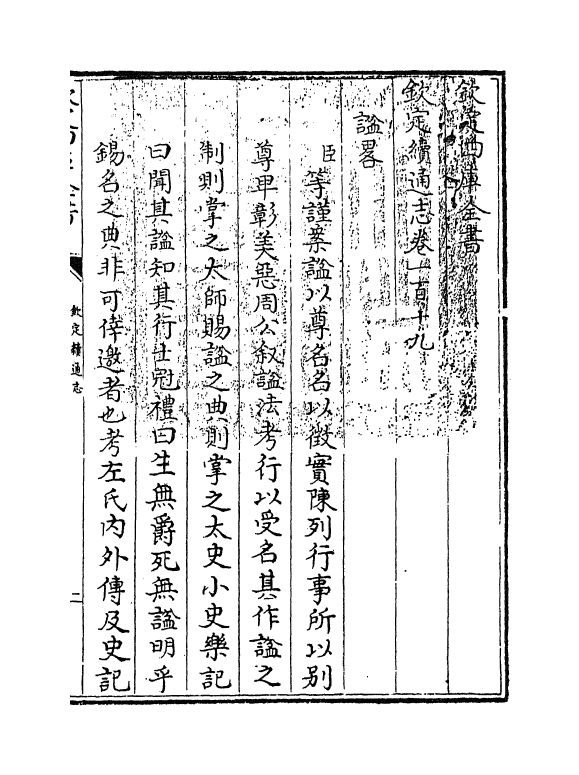 欽定四庫全書
欽定續通志卷一百十九
諡畧
臣等謹案諡以尊名名以徴實陳列行事所以别
尊卑彰美惡周公叙諡法考行以受名其作諡之
制則掌之太師賜諡之典則掌之太史小史樂記
曰聞其諡知其行士冠禮曰生無爵死無諡明乎
錫名之典非可倖邀者也考左氏内外傳及史記
欽定續通志
二